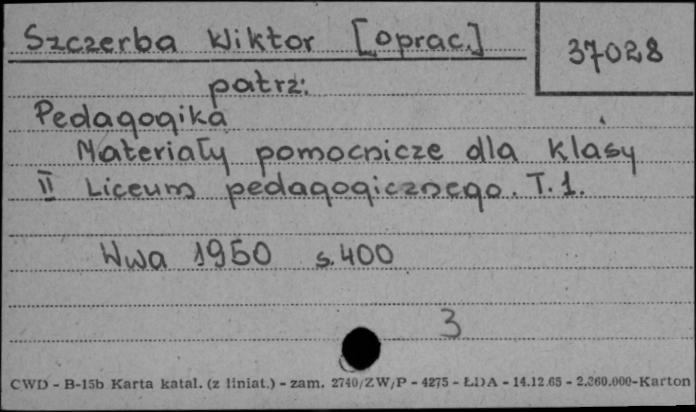 Szczerba Wiktor [oprac.]
37028
patrz:
Pedagogika
Materiały pomocnicze dla klasy
II Liceum pedagogicznego. T.1.
Wwa 1950 s.400
3
CWD - B-15b Karta katal. (z liniat.) - zam. 2740/ZW/P - 4275 - ŁDA - 14.12.65 - 2.360.000-Karton